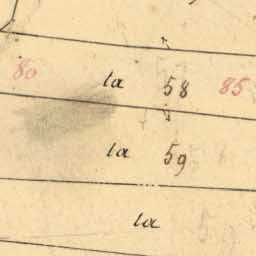 80 la 58 85
la 59
la